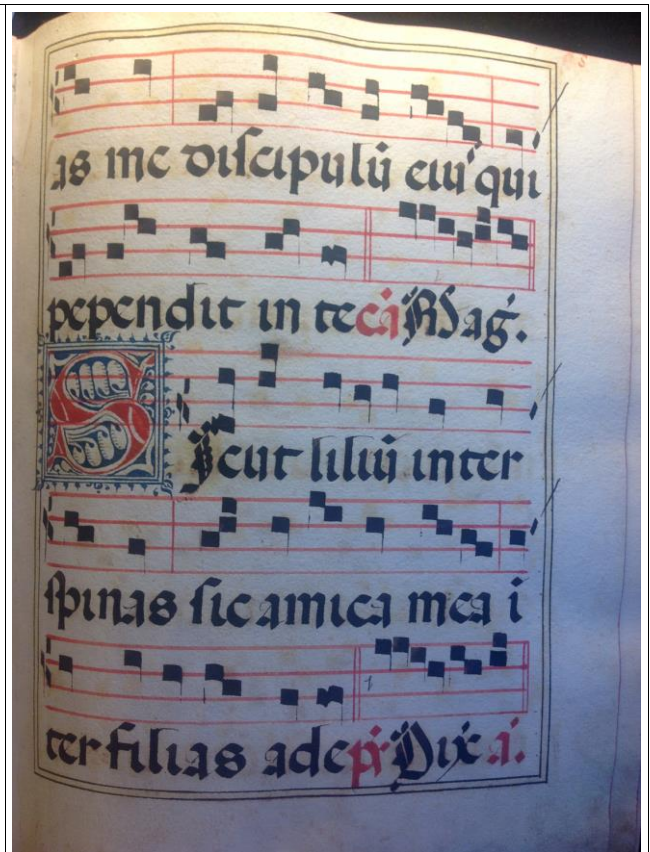 as me discipulū eiu' qui
pependit in te cā Mag.
Sicut liliū inter
spinas sic amica mea i
ter filias ade pš Dix a.